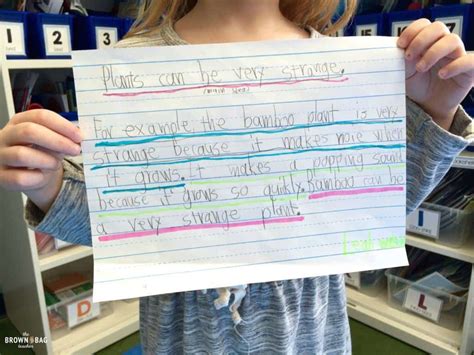 1
2
3
Plants can be very strange.
(main idea)
For example the bamboo plant is very
strange because it makes noie when
it grows. It makes a popping sound
because it grows so quikly. Bamboo can be
a very strange plant.
I
D
L
the
BROWN BAG
teacher